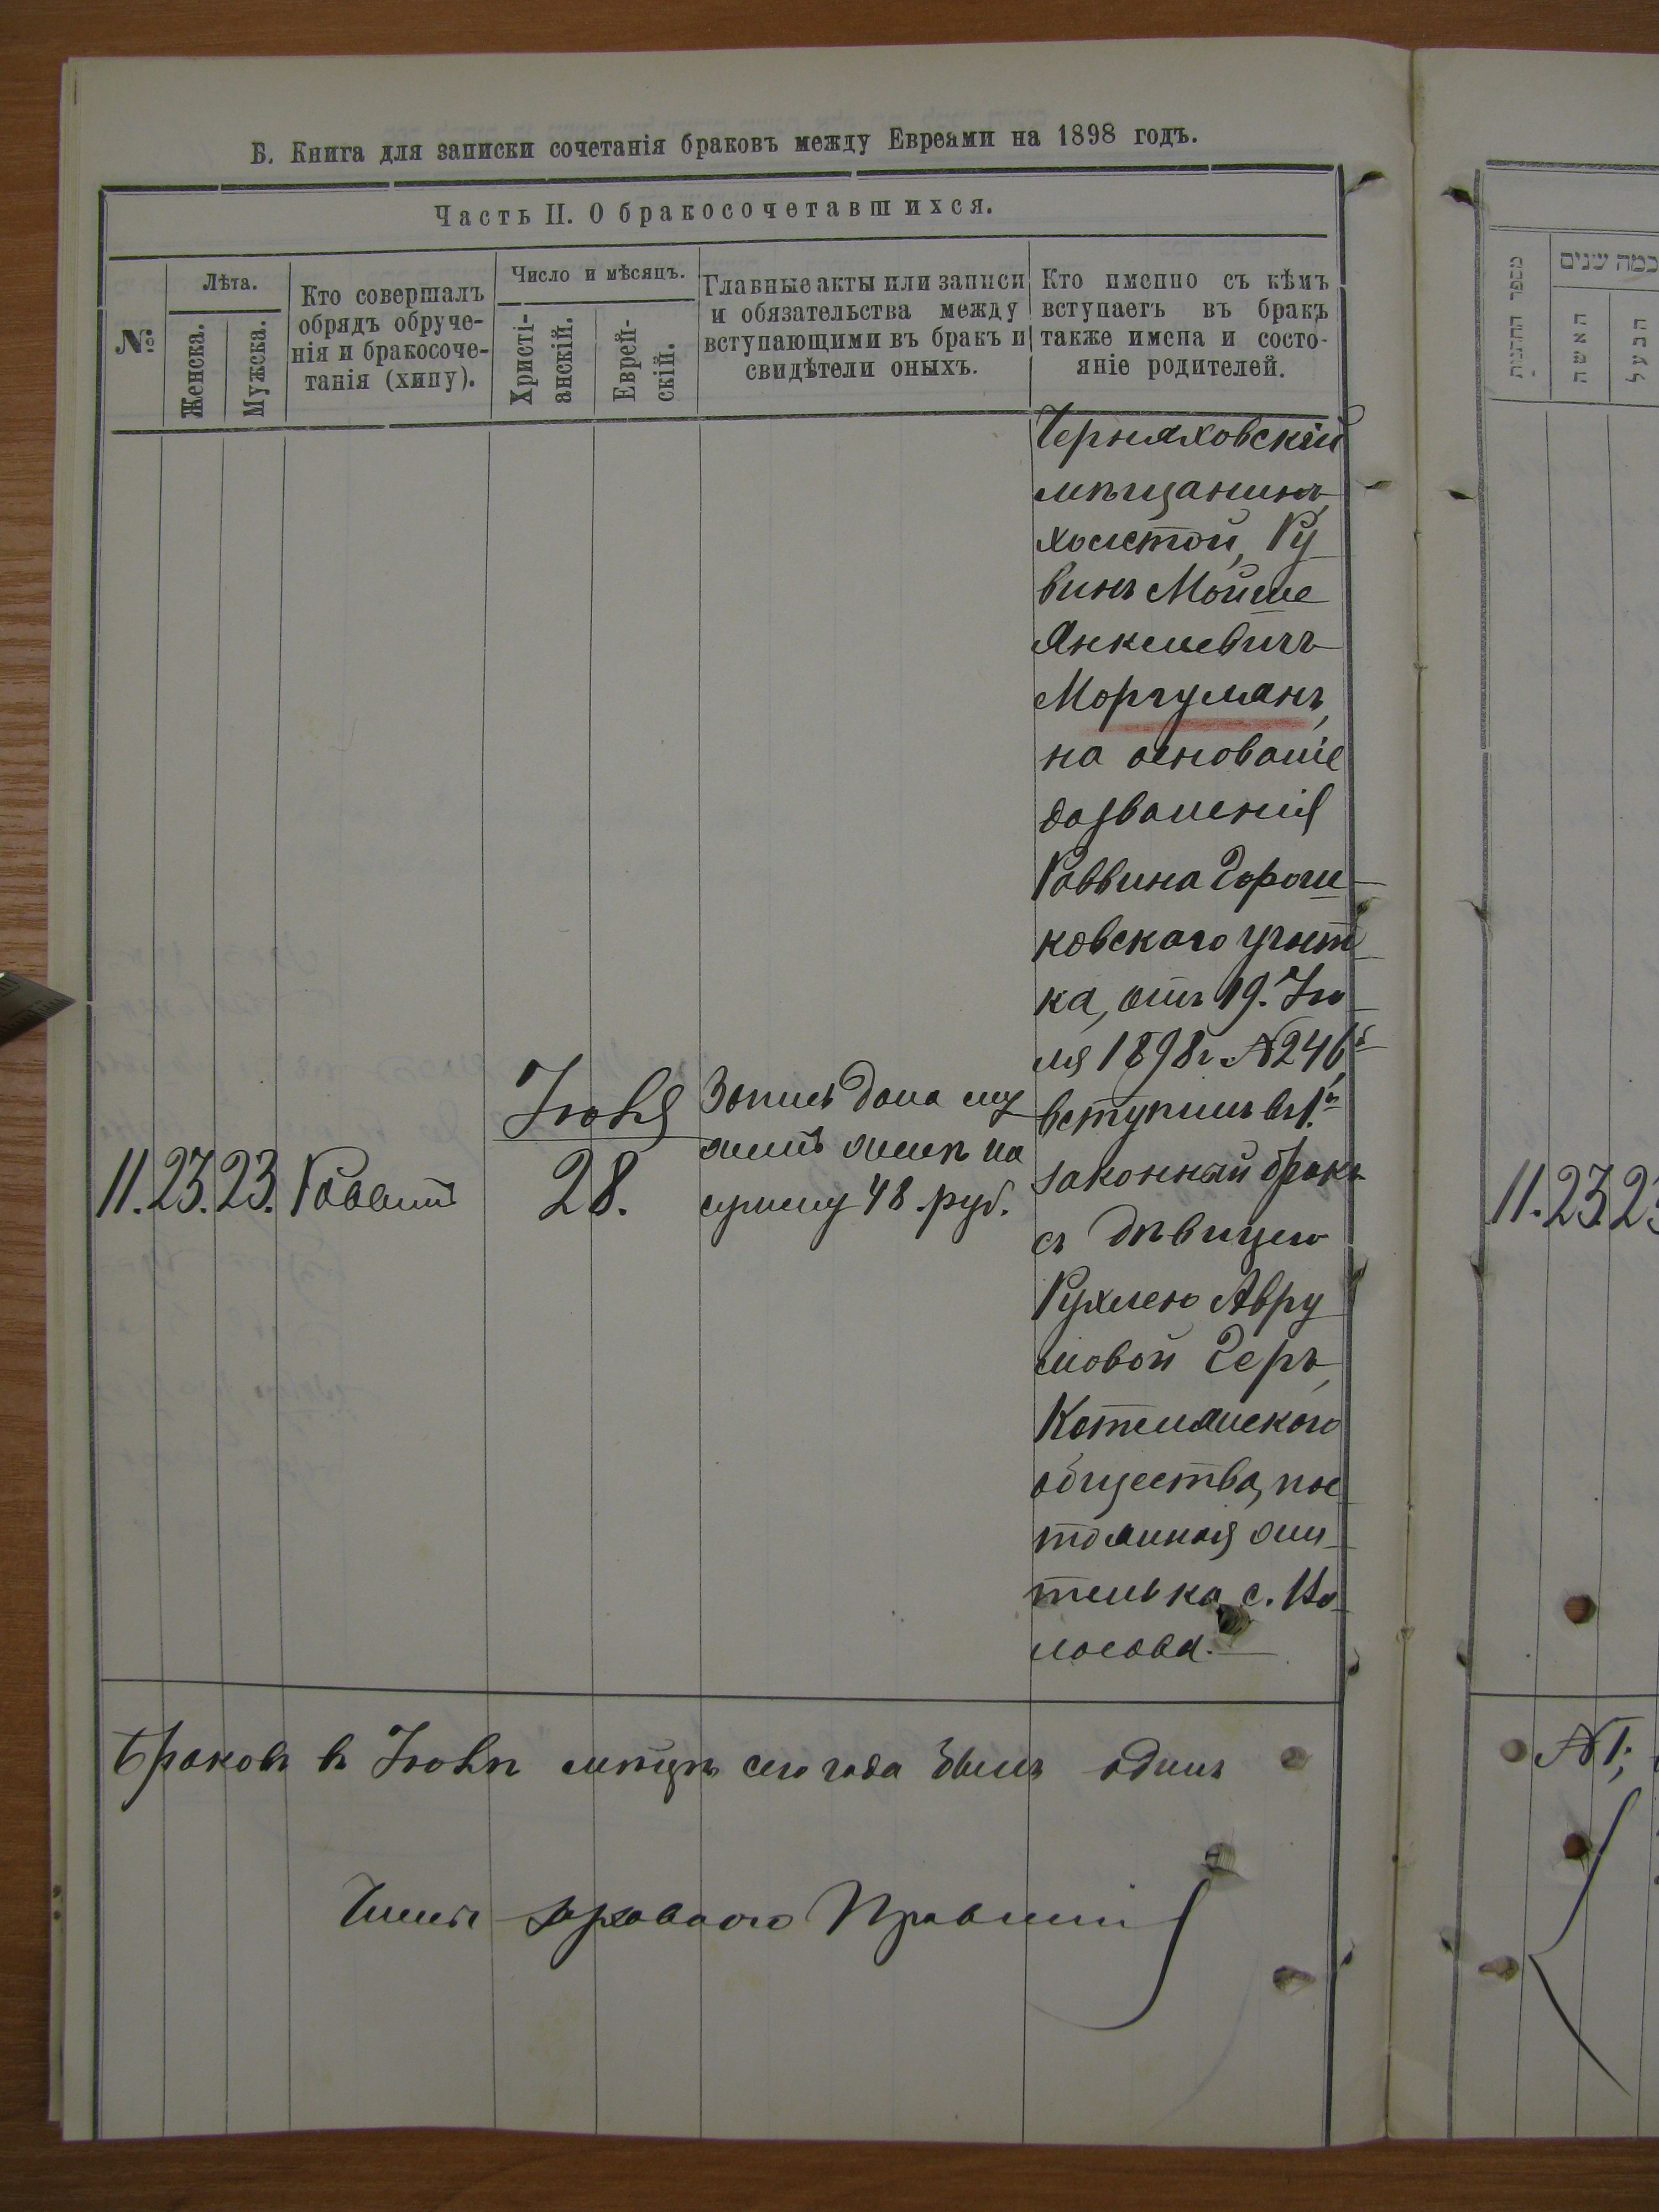 Б. Книга для записки сочетанія браковъ между Евреями на 1898 годъ.
Часть II. О бракосочетавшихся.
№
Лѣта.
Женска.
Мужска.
Кто совершалъ
обрядъ обруче-
нія и бракосоче-
танія (хипу).
Число и мѣсяцъ.
Христі-
анскій.
Еврей-
скій.
Главные акты или записи
и обязательства между
вступающими въ бракъ и
свидѣтели оныхъ.
Кто именно съ кѣмъ
вступаетъ въ бракъ
также имена и состо-
яніе родителей.
11. 23. 23. Раввинъ
Іюля
28.
Запись дана му
жемъ женѣ на
сумму 48 руб.
Черняховскій
мѣщанинъ,
холстой, Ру
винъ Мойше
Янкелевичъ
Моргулянъ,
на основаніе
дозволенія
Раввина Горош-
ковскаго участ-
ка, отъ 19. Ію
ля 1898 г. №246,
вступилъ въ 1й
законный бракъ
съ дѣвицею
Рухлею Авру
мовой Геръ,
Котелянского
общества, пос
тоянная жи-
телька, с.
Браковъ въ Іюлѣ мѣцѣ сего года былъ одинъ
Членъ Духовного Правленія
מספר
כמה שנים
האשה
הבעל
11. 23 23
№1;